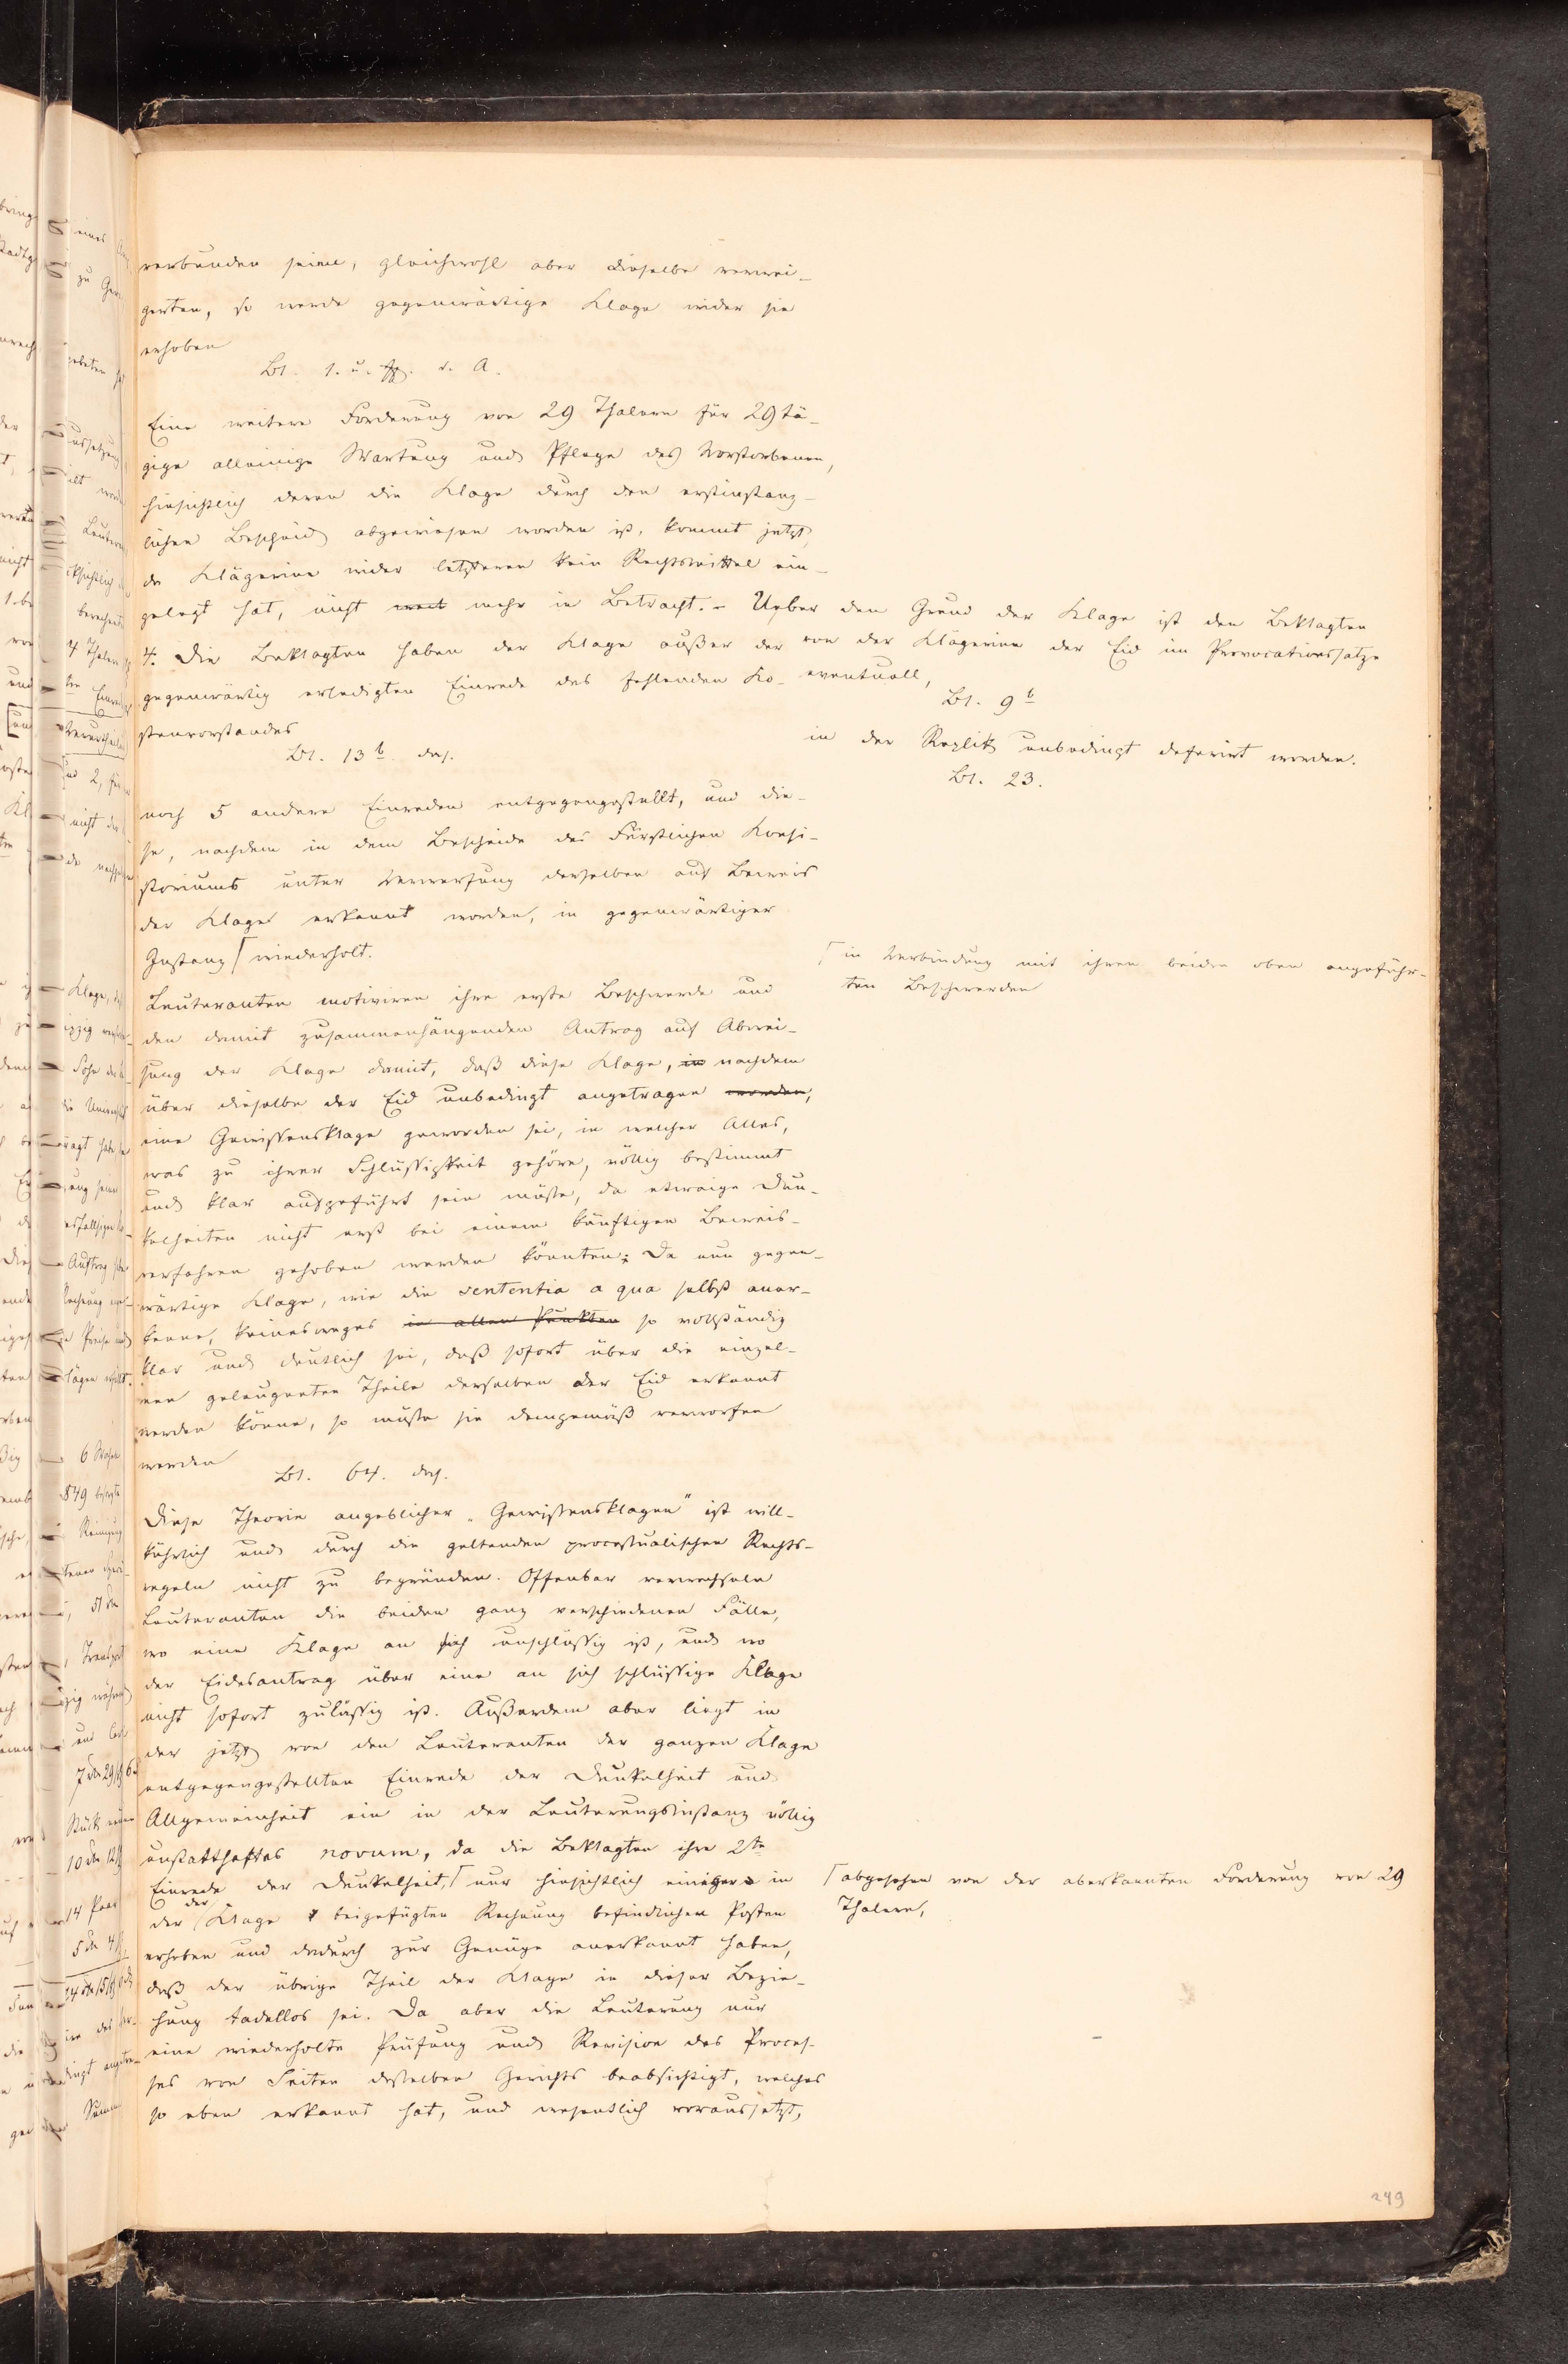 verbunden seien, gleichwohl aber dieselbe verwei-
gerten, so werde gegenwärtige Klage wider sie
erhoben
Bl. 1. u. ff. d. A.
Eine weitere Forderung von 29 Thalern für 29tä-
gige alleinige Wartung und Pflege des Verstorbenen,
hinsichtlich deren die Klage durch den erstinstanz-
lichen Bescheid abgewiesen worden ist, kommt jetzt,
da Klägerinn wider letzteren kein Rechtsmittel ein-
gelegt hat, nicht mehr in Betracht. - Ueber den Grund der Klage ist den Beklagten
von der Klägerinn der Eid im Provocationssatze
eventuell,
Bl. 9b
in der Replik unbedingt deferirt worden.
Bl. 23.
4. Die Beklagten haben der Klage außer der
gegenwärtig erledigten Einrede des fehlenden Ko-
stenvorstandes
Bl. 13b das.
noch 5 andere Einreden entgegengestellt, und die-
se, nachdem in dem Bescheide des Fürstlichen Konsi-
storiums unter Verwerfung derselben auf Beweis
der Klage erkannt worden, in gegenwärtiger
Instanz ⌈ wiederholt.
⌈ in Verbindung mit ihren beiden oben angeführ-
ten Beschwerden
Leuteranten motiviren ihre erste Beschwerde und
den damit zusammenhängenden Antrag auf Abwei-
sung der Klage damit, daß diese Klage, in nachdem
über dieselbe der Eid unbedingt angetragen worden,
eine Gewissensklage geworden sei, in welcher Alles,
was zu ihrer Schlüssigkeit gehöre, völlig bestimmt
und klar ausgeführt sein müsse, da etwaige Dun-
kelheiten nicht erst bei einem künftigen Beweis-
verfahren gehoben werden könnten; Da nun gegen-
wärtige Klage, wie die sententia a qua selbst aner-
kenne, keinesweges in allen Punkten so vollständig
klar und deutlich sei, daß sofort über die einzel-
nen geleugneten Theile derselben der Eid erkannt
werden könne, so müsse sie demgemäß verworfen
werden
Bl. 64. das.
Diese Theorie angeblicher „Gewissensklagen" ist will-
kührlich und durch die geltenden processualischen Rechts-
regeln nicht zu begründen. Offenbar verwechseln
Leuteranten die beiden ganz verschiedenen Fälle,
wo eine Klage an sich unschlüssig ist, und wo
der Eidesantrag über eine an sich schlüssige Klage
nicht sofort zulässig ist. Außerdem aber liegt in
der jetzt von den Leuteranten der ganzen Klage
entgegengestellten Einrede der Dunkelheit und
Allgemeinheit ein in der Leuterungsinstanz völlig
unstatthaftes novum, da die Beklagten ihre 2te
Einrede der Dunkelheit, ⌈ nur hinsichtlich einiger in
⌈ abgesehen von der aberkannten Forderung von 29
Thalern,
der der Klage beigefügten Rechnung befindlichen Posten
erhoben und dadurch zur Genüge anerkannt haben,
daß der übrige Theil der Klage in dieser Bezie-
hung tadellos sei. Da aber die Leuterung nur
eine wiederholte Prüfung und Revision des Proces-
ses von Seiten desselben Gerichts beabsichtigt, welches
so eben erkannt hat, und wesentlich voraussetzt,
249